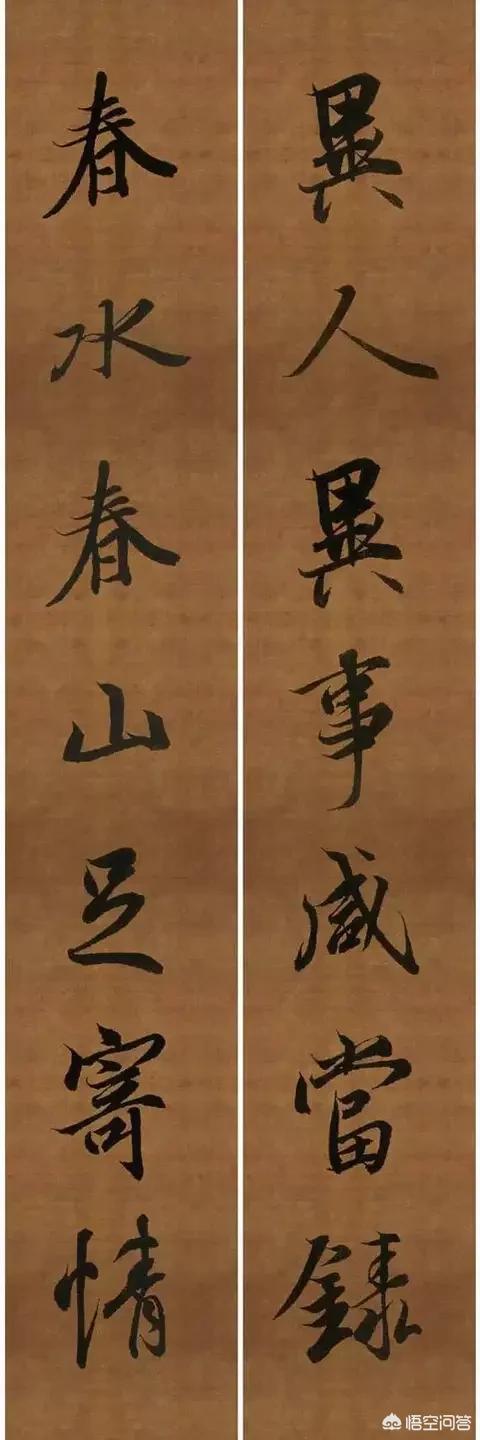 異人異事咸當錄
春水春山足寄情
悟空问答